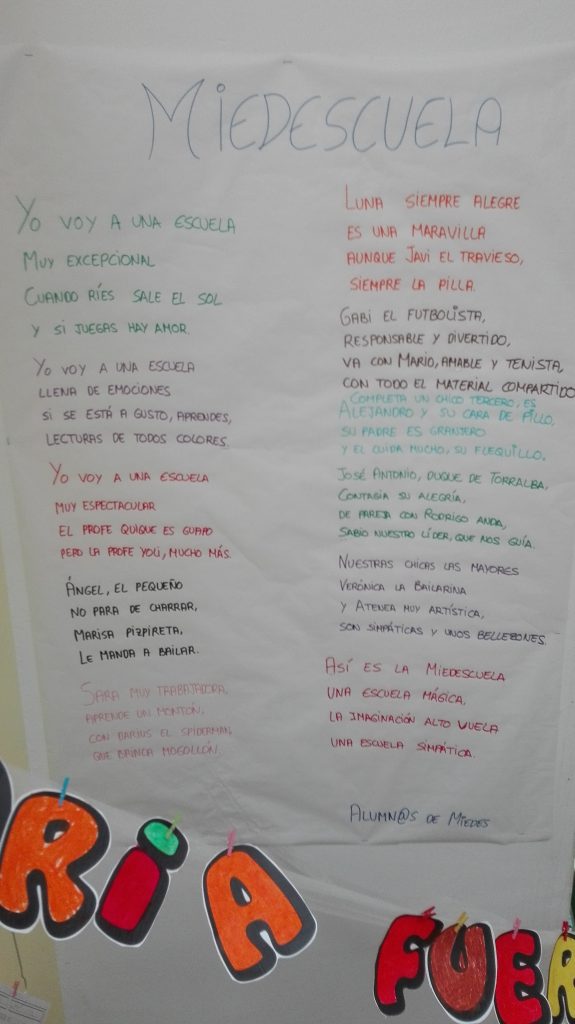 MIEDESCUELA
YO VOY A UNA ESCUELA
MUY EXCEPCIONAL
CUANDO RÍES SALE EL SOL
Y SI JUEGAS HAY AMOR.
YO VOY A UNA ESCUELA
LLENA DE EMOCIONES
SI SE ESTÁ A GUSTO, APRENDES,
LECTURAS DE TODOS COLORES.
YO VOY A UNA ESCUELA
MUY ESPECTACULAR
EL PROFE QUIQUE ES GUAPO
PERO LA PROFE YOLI, MUCHO MÁS.
ÁNGEL, EL PEQUEÑO
NO PARA DE CHARRAR,
MARISA PIZPIRETA,
LE MANDA A BAILAR.
SARA MUY TRABAJADORA,
APRENDE UN MONTÓN,
CON DARIUS EL SPIDERMAN,
QUE BRINCA MOGOLLÓN.
LUNA SIEMPRE ALEGRE
ES UNA MARAVILLA
AUNQUE JAVI EL TRAVIESO,
SIEMPRE LA PILLA.
GABI EL FUTBOLISTA,
RESPONSABLE Y DIVERTIDO,
VA CON MARIO, AMABLE Y TENISTA,
CON TODO EL MATERIAL COMPARTIDO
COMPLETA UN CHICO TERCERO, ES
ALEJANDRO Y SU CARA DE PILLO,
SU PADRE ES GRANJERO
Y EL CUIDA MUCHO, SU FLEQUILLO.
JOSÉ ANTONIO, DUQUE DE TORRALBA,
CONTAGIA SU ALEGRÍA,
DE PAREJA CON RODRIGO ANDA,
SABIO NUESTRO LÍDER, QUE NOS GUÍA.
NUESTRAS CHICAS LAS MAYORES
VERÓNICA LA BAILARINA
Y ATENEA MUY ARTÍSTICA,
SON SIMPÁTICAS Y UNOS BELLEZONES.
ASÍ ES LA MIEDESCUELA
UNA ESCUELA MÁGICA,
LA IMAGINACIÓN ALTO VUELA
UNA ESCUELA SIMPÁTICA.
ALUMN@S DE MIEDES
RIA FUER